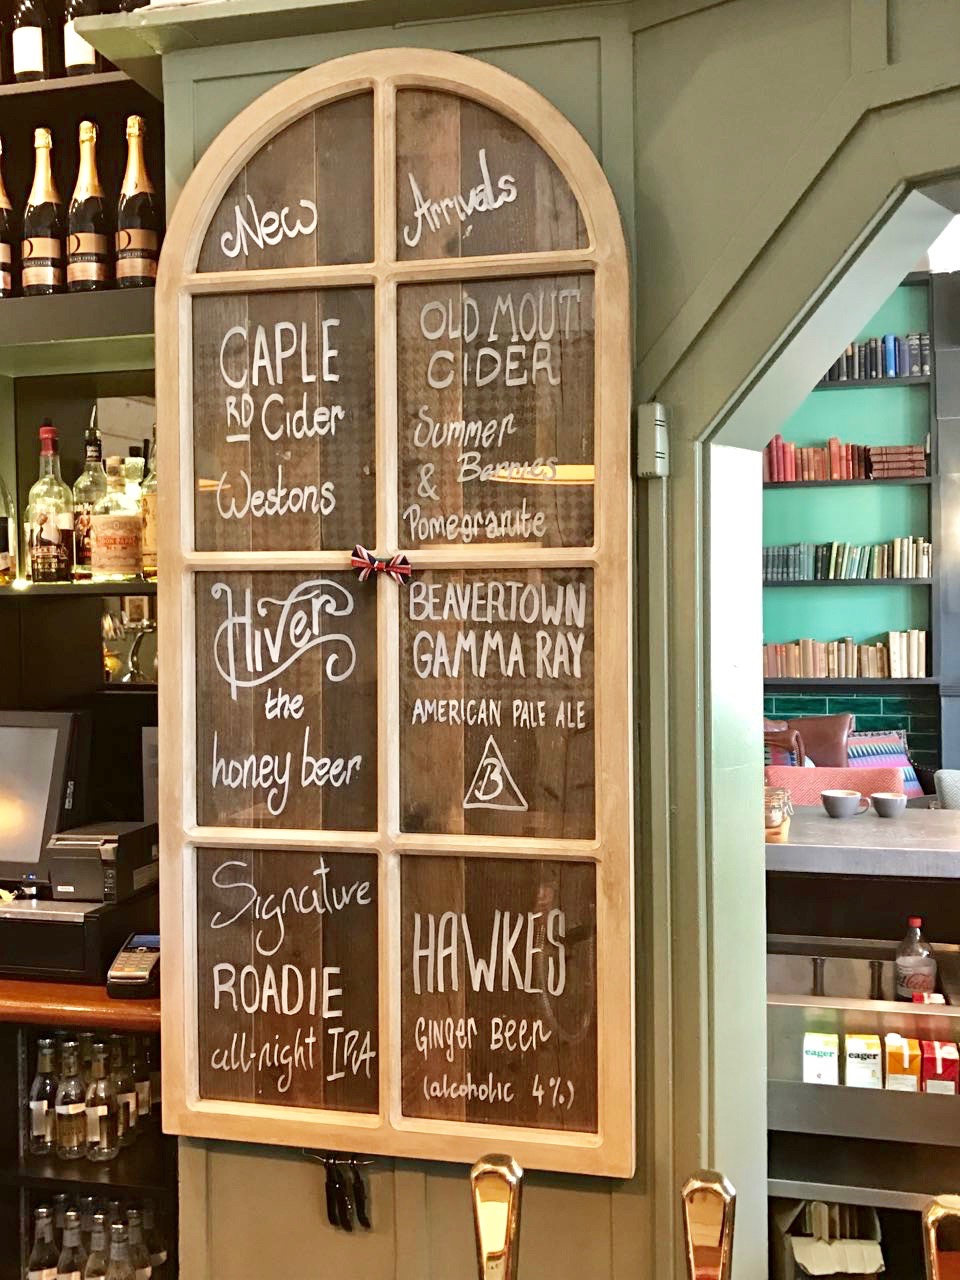 New
Arrivals
CAPLE
RD Cider
Westons
OLD MOUT
CIDER
Summer
& Berries
Pomegranite
Hiver
the
honey beer
BEAVERTOWN
GAMMA RAY
AMERICAN PALE ALE
B
Signature
ROADIE
all-night IPA
HAWKES
GINGER BEER
(alcoholic 4%)
eager
eager